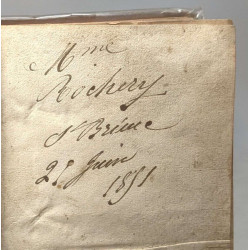 Mme
Rochery
St Brieuc
25 Juin
1851